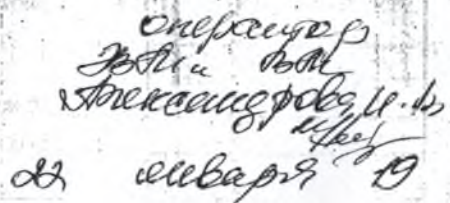 оператор
ЭВМ и ВМ
Александрова И.В.
22 января 19